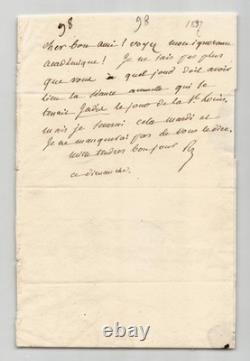 98 98 1837
cher bon ami ! voyez mon ignorance
académique ! Je ne sais pas plus
que vous à quel jour doit avoir
lieu la séance annuelle qui se
tenait jadis le jour de la St Louis,
mais je saurai cela mardi et
Je ne manquerai pas de vous le dire.
mille tendres bonjours
ce dimanche.
© ebay